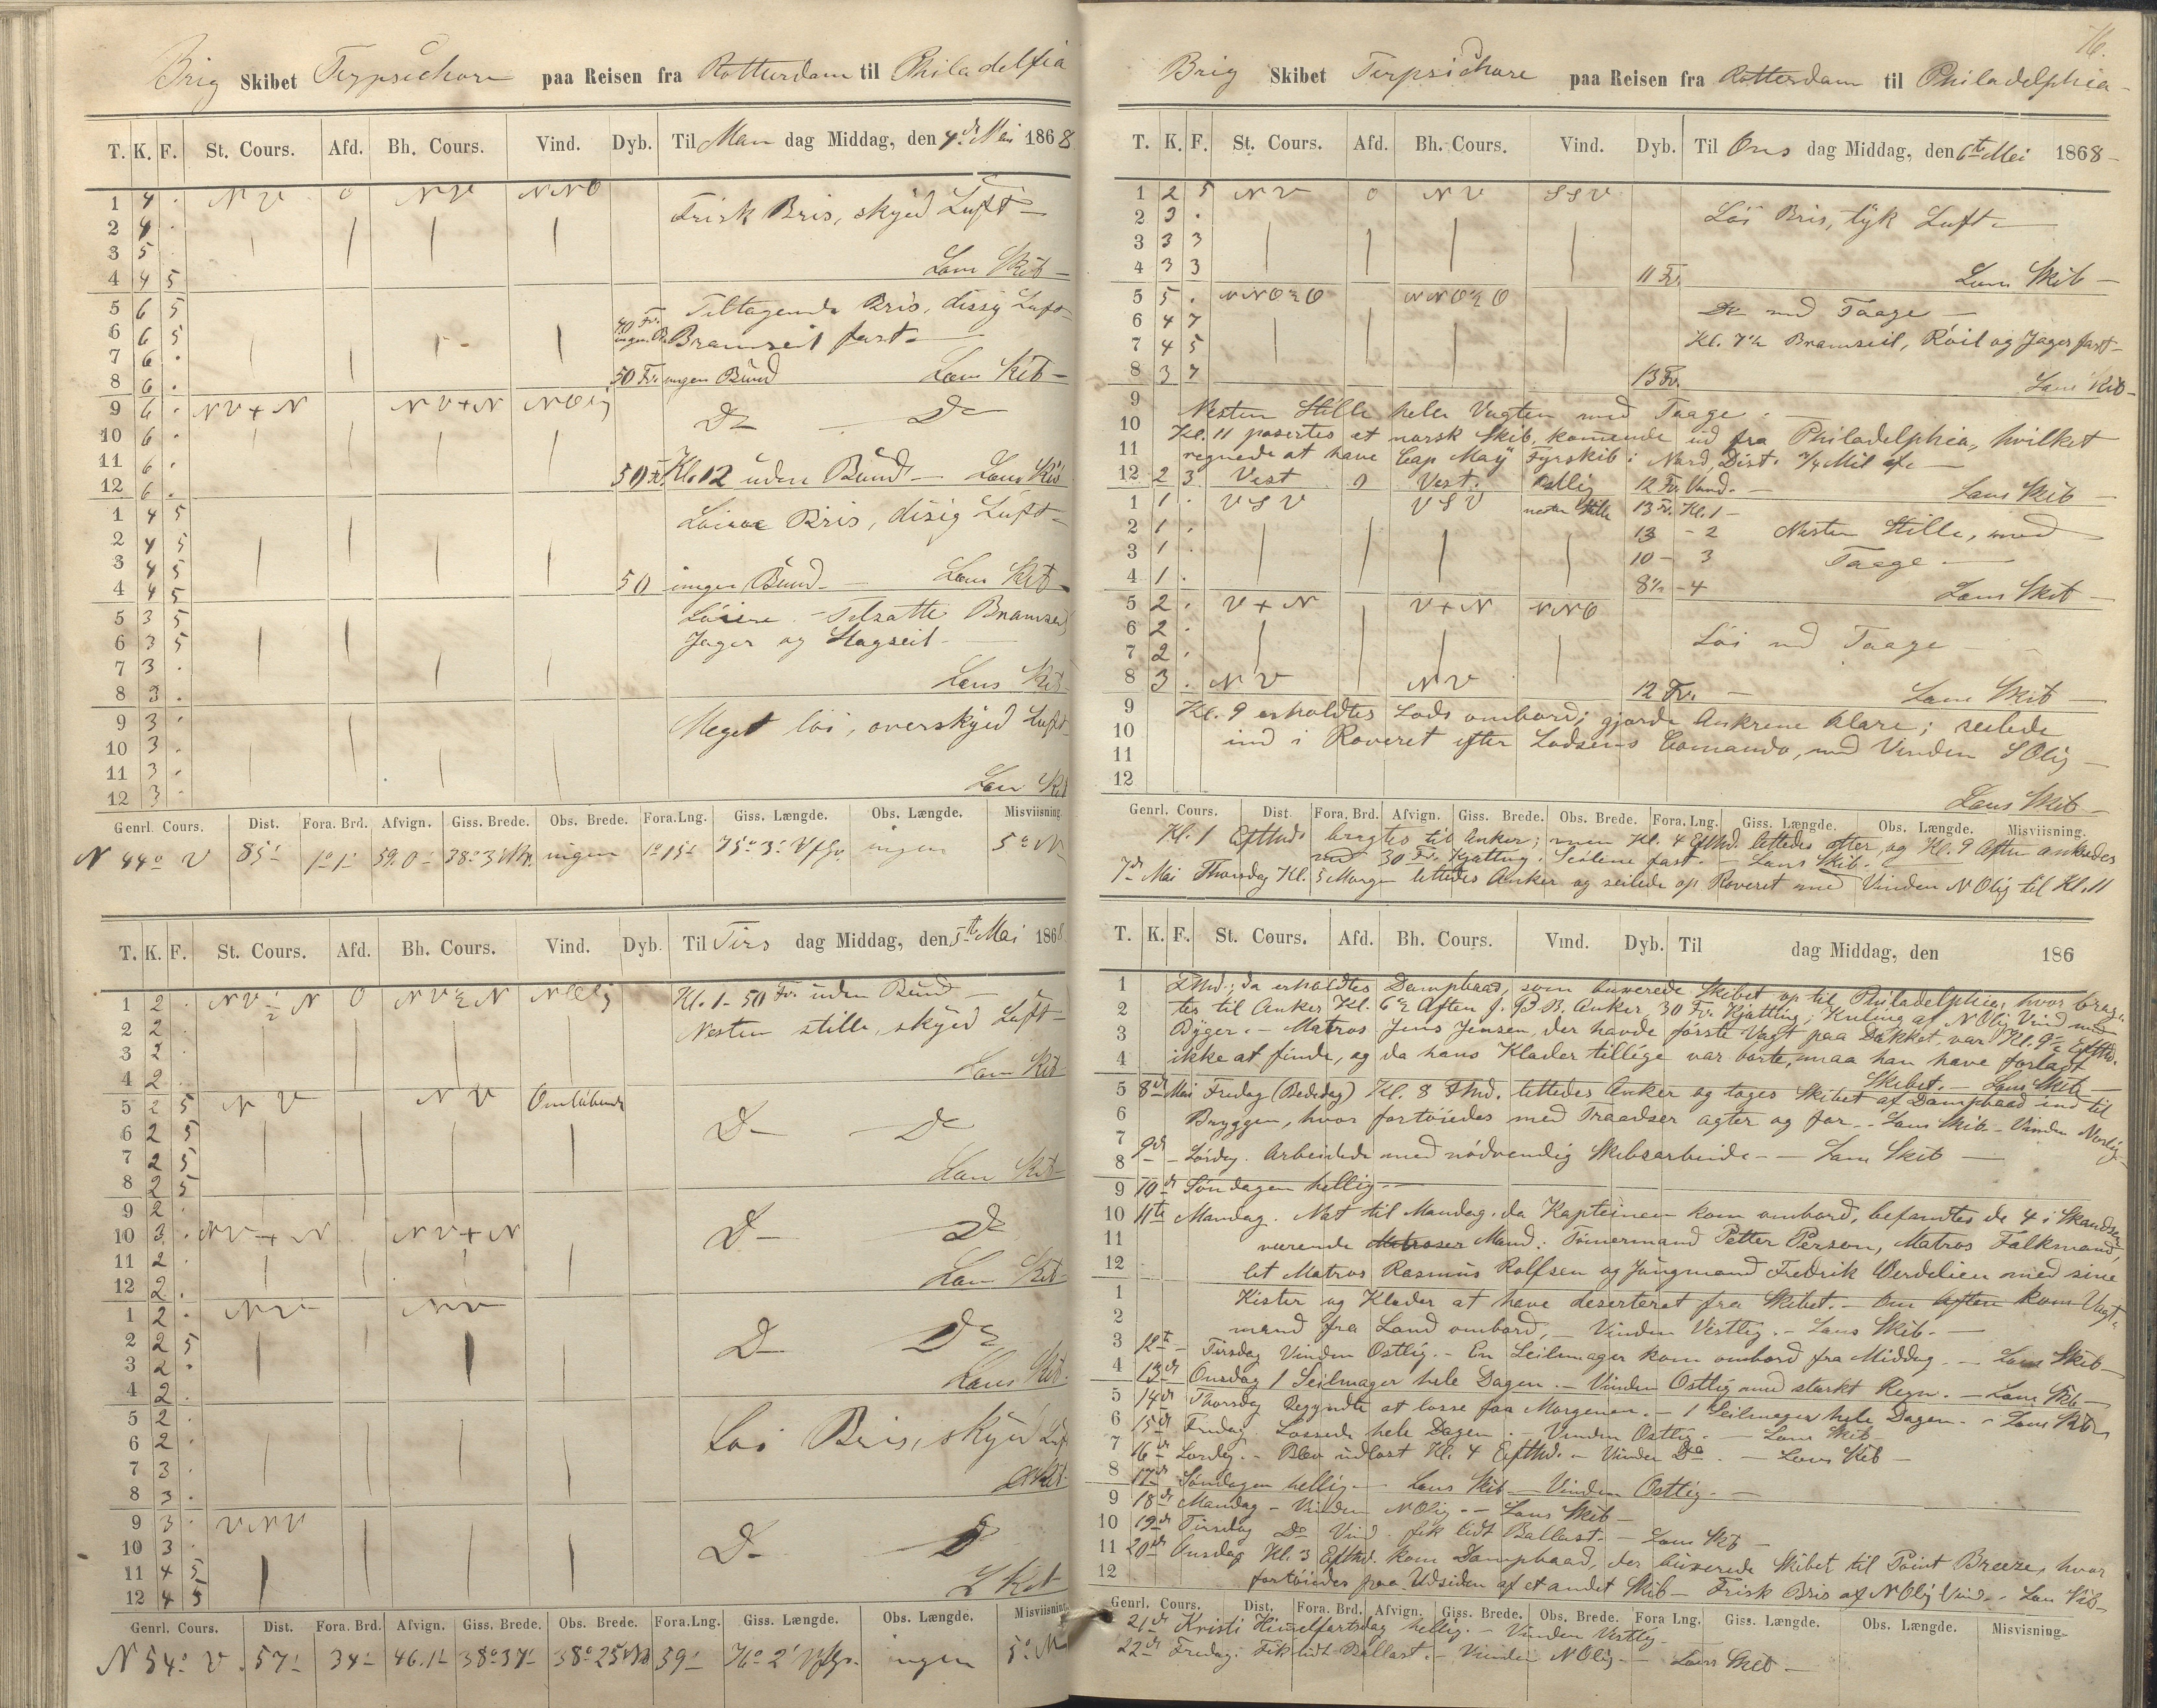 Brig Skibet Terpsichore paa Reisen fra Rotterdam til Philadelfia
T. K. F. St. Cours. Afd. Bh. Cours. Vind. Dyb. Til Man dag Middag, den 4de Mai 1868
1 4 . NV 0 NV NNO
Frisk Bris, skyed Luft —
2 4 .
3 5 .
4 4 5 Læns Skib —
5 6 5 Tiltagende Bris, dissig Luft
6 6 5 40 Fv. ingen B. Bramseil fast —
7 6 .
8 6 . 50 Fv. ingen Bund Læns Skib —
9 6 . NV + N NV + N NOlig Do — Do
10 6 .
11 6 .
12 6 . 50 Fv. Kl. 12 uden Bund — Læns Skib
1 4 5 Løiere Bris, disig Luft —
2 4 5
3 4 5
4 4 5 50 ingen Bund — Læns Skib
5 3 5 Løiere — Tilsatte Bramseil
6 3 5 Jager og Stagseil —
7 3 .
8 3 . Læns Skib
9 3 . Meget løi, overskyed Luft
10 3 .
11 3 .
12 3 . Læns Skib
Genrl. Cours. Dist. Fora. Brd. Afvign. Giss. Brede. Obs. Brede. Fora.Lng. Giss. Længde. Obs. Længde. Misviisning.
N 44° V 85' 1° 1' 59.0' 38° 3' N ingen 1° 15' 75° 3' ingen 5° N
T. K. F. St. Cours. Afd. Bh. Cours. Vind. Dyb. Til Tirs dag Middag, den 5te Mai 1868
1 2 . NV ½ N 0 NV ½ N NOlig Kl. 1 – 50 Fv. uden Bund —
2 2 . Nesten stille, skyed Luft —
3 2 .
4 2 . Læns Skib
5 2 5 NV NV Omløbende
6 2 5 Do — Do
7 2 5
8 2 5 Læns Skib
9 2 .
10 3 . NV + N NV + N Do — Do
11 2 .
12 2 . Læns Skib
1 2 . NV NV
2 2 5 Do — Do
3 2 .
4 2 . Læns Skib
5 2 .
6 2 . Løi Bris, skyed Luft
7 3 .
8 3 .
9 3 . VNV
10 3 . Do — Do
11 4 5
12 4 5 L Skib
Genrl. Cours. Dist. Fora. Brd. Afvign. Giss. Brede. Obs. Brede. Fora.Lng. Giss. Længde. Obs. Længde. Misviisning.
N 54° V. 57' 34' 46.1' 38° 37' 38° 25' 59' 76° 2' ingen 5° N
76.
Brig Skibet Terpsichore paa Reisen fra Rotterdam til Philadelphia —
T. K. F. St. Cours. Afd. Bh. Cours. Vind. Dyb. Til Ons dag Middag, den 6te Mei 1868 —
1 2 5 NV 0 NV SSV
2 3 . Løi Bris, tyk Luft —
3 3 3
4 3 3 11 Fv. Læns Skib —
5 5 . NNO ½ O NNO ½ O Do med Taage —
6 4 7
7 4 5 Kl. 7 ½ Bramseil, Røil og Jager fast —
8 3 7 13 Fv. Læns Skib —
9 Nesten Stille hele Vagten med Taage. —
10 Kl. 11 passertes et norsk Skib, komende ud fra Philadelphia, hvilket
11 regnede at have Cap May Fyrskib i Nord, Dist. ¾ Mil af —
12 2 3 Vest 0 Vest. Østlig 12 Fv. Vand. — Læns Skib —
1 1 . VSV VSV nesten Stille 13 Fv. Kl. 1 —
2 1 . 13 – 2 Nesten Stille, med
3 1 . 10 – 3 Taage —
4 1 . 8½ – 4 Læns Skib —
5 2 . V + N V + N NNO
6 2 . Løi med Taage —
7 2 .
8 3 . NV NV 12 Fv. — Læns Skib —
9 Kl. 9 erholdtes Lods ombord; gjorde Ankrene klare; seilede
10 ind i Roveret efter Lodsens Comando, med Vinden SOlig —
11
12 Læns Skib —
Genrl. Cours. Dist. Fora. Brd. Afvign. Giss. Brede. Obs. Brede. Fora.Lng. Giss. Længde. Obs. Længde. Misviisning.
Kl. 1 Efthmd. bragtes til Anker; men Kl. 4 Efthmd. lettedes atter og Kl. 9 Aften ankredes
med 30 Fv. Kjætting. Seilene fast. — Læns Skib. —
7de Mai Thorsdag Kl. 5 Morgen lettedes Anker og seilede op Roveret med Vinden NOlig til Kl. 11
T. K. F. St. Cours. Afd. Bh. Cours. Vind. Dyb. Til dag Middag, den 186
1 da erholdtes Dampbaad, som buxerede Skibet op til Philadelphia, hvor brag-
2 tes til Anker Kl. 6 ½ Aften f. B B. Anker, 30 Fv. Kjætting; Kuling af NOlig Vind med
3 Byger. — Matros Jens Jensen, der havde første Vagt paa Dækket, var Kl. 9 ½ Efthmd.
4 ikke at finde, og da hans Klæder tillige var borte, maa han have forladt
Skibet. — Læns Skib —
5 8de Mai Fredag (Bededag) Kl. 8 Fmd. lettedes Anker og toges Skibet af Dampbaad ind til
6 Bryggen, hvor fortøiedes med Traadser agter og for. — Læns Skib. — Vinden Nordlig —
7
8 9de — Lørdag. Arbeidede med nødvendig Skibsarbeide — — Læns Skib —
9 10de Søndagen hellig —
10 11te Mandag. Nat til Mandag, da Kapteinen kom ombord, befandtes de 4 i Skandsen
11 værende Matroser Mand: Tømermand Petter Person, Matros Falkmand,
12 let Matros Rasmus Rolfsen og Jungmand Fredrik Verdelien med sine
1 Kister og Klæder at have deserteret fra Skibet. — Om Aften kom Vagt-
2 mand fra Land ombord, — Vinden Vestlig. — Læns Skib. —
3 12te — Tirsdag Vinden Østlig. — En Seilmager kom ombord fra Middag. — Læns Skib —
4 13de Onsdag 1 Seilmager hele Dagen. — Vinden Østlig med stærkt Regn. — Læns Skib —
5 14de Thorsdag Begyndte at losse paa Morgenen. — 1 Seilmager hele Dagen. — Læns Skib
6 15de Fredag. Lossede hele Dagen. — Vinden Østlig. — Læns Skib —
7 16de Lørdag. — Blev udlost Kl. 4 Efthmd. — Vinden Do. — Læns Skib —
8 17de Søndagen hellig. — Læns Skib — Vinden Østlig. —
9 18de Mandag — Vinden NOlig. — Læns Skib —
10 19de Tirsdag Do Vind. fik lidt Ballast. — Læns Skib —
11 20de Onsdag Kl. 3 Efthmd. kom Dampbaad, der buxerede Skibet til Point Breeze, hvor
12 fortøiedes paa Udsiden af et andet Skib — Frisk Bris af NOlig Vind. — Læns Skib —
Genrl. Cours. Dist. Fora. Brd. Afvign. Giss. Brede. Obs. Brede. Fora Lng. Giss. Længde. Obs. Længde. Misvisning.
21de Kristi Himelfartsdag hellig. — Vinden Vestlig —
22de Fredag. Fik lidt Ballast. — Vinden NOlig — Læns Skib —